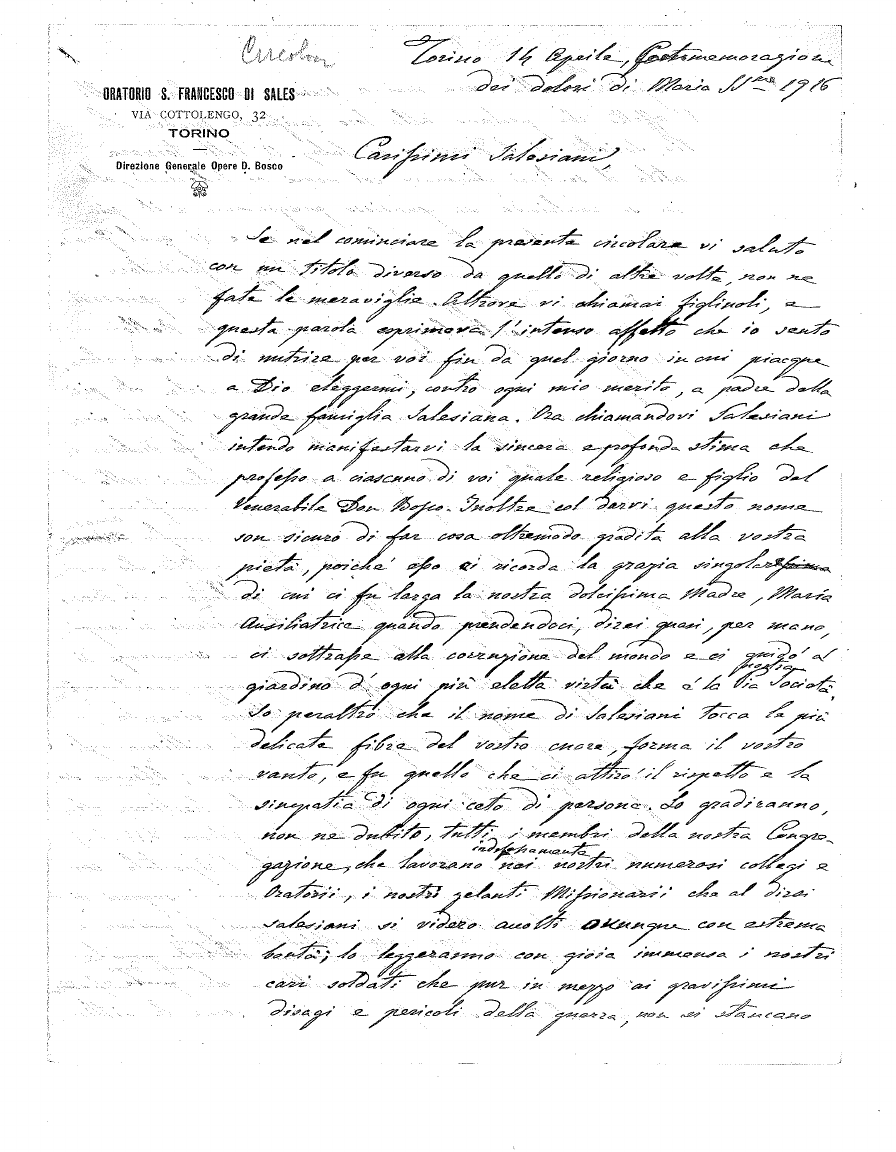 Circolare
Torino 14 Aprile, Commemorazione
dei dolori di Maria SS.ma 1916
ORATORIO S. FRANCESCO DI SALES
VIA COTTOLENGO, 32
TORINO
Direzione Generale Opere D. Bosco
Carissimi Salesiani,
Se nel cominciare la presente circolare vi saluto
con un titolo diverso da quello di altre volte, non ne
fate le meraviglie. Altrove vi chiamai figliuoli, e
questa parola esprimeva l'intenso affetto che io sento
di nutrire per voi fin da quel giorno in cui piacque
a Dio eleggermi, contro ogni mio merito, a padre della
grande famiglia Salesiana. Ora chiamandovi Salesiani
intendo manifestarvi la sincera e profonda stima che
professo a ciascuno di voi quale religioso e figlio del
Venerabile Don Bosco. Inoltre col darvi questo nome
son sicuro di far cosa oltremodo gradita alla vostra
pietà, poichè esso ci ricorda la grazia singolare
di cui ci fu larga la nostra dolcissima Madre, Maria
Ausiliatrice quando prendendoci, direi quasi, per mano,
ci sottrasse alla corruzione del mondo e ci guidò al
giardino d'ogni più eletta virtù che è la nostra Pia Società.
So peraltro che il nome di Salesiani tocca le più
delicate fibre del vostro cuore, forma il vostro
vanto, e fu quello che ci attirò il rispetto e la
simpatia di ogni ceto di persone. Lo gradiranno,
non ne dubito, tutti i membri della nostra Congre-
gazione, che lavorano indefessamente nei nostri numerosi collegi e
Oratorii, i nostri zelanti Missionarii che al dirsi
salesiani si videro accolti ovunque con estrema
bontà; lo leggeranno con gioia immensa i nostri
cari soldati che pur in mezzo ai gravissimi
disagi e pericoli della guerra, non si stancano